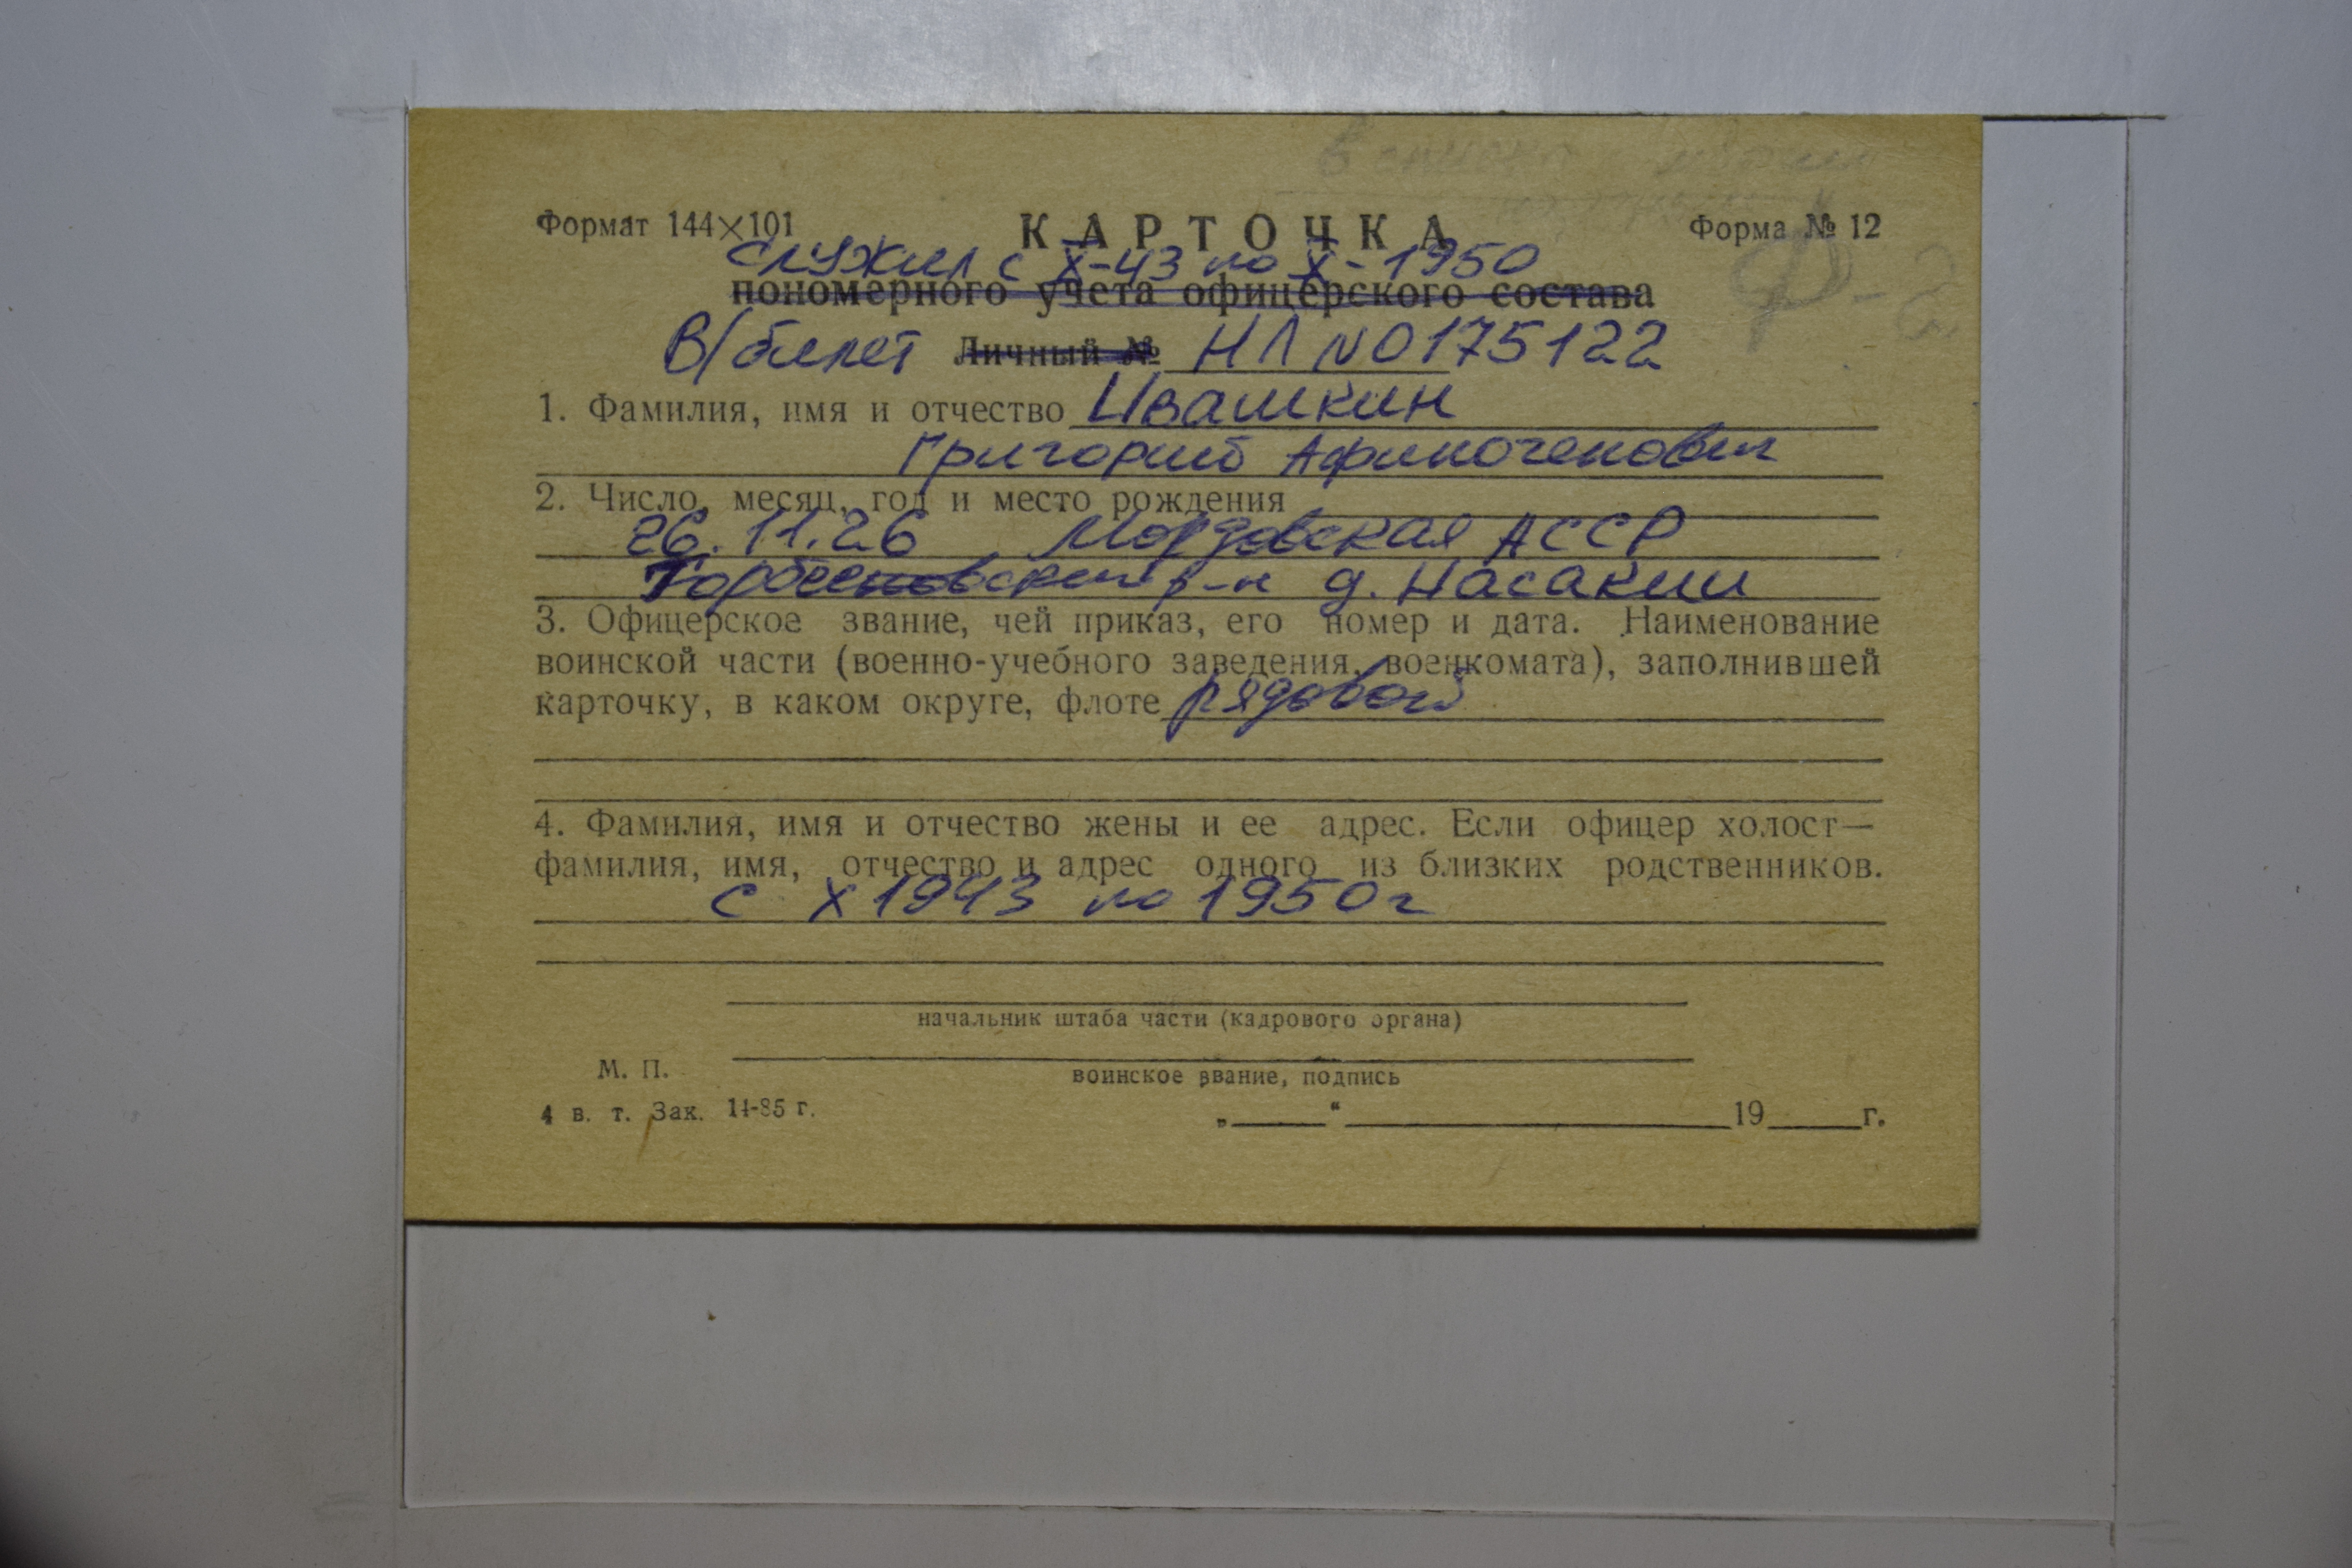 Формат 144×101
КАРТОЧКА
Форма № 12
Служил с X-43 по X-1950
пономерного учета офицерского состава
В/билет Личный № НЛ №0175122
1. Фамилия, имя и отчество Ивашкин
Григорий Афиногенович
2. Число, месяц, год и место рождения
26.11.26 Мордовская АССР
р-н д. Насакин
3. Офицерское звание, чей приказ, его номер и дата. Наименование
воинской части (военно-учебного заведения, военкомата), заполнившей
карточку, в каком округе, флоте рядовой
4. Фамилия, имя и отчество жены и ее адрес. Если офицер холост—
фамилия, имя, отчество и адрес одного из близких родственников.
с X 1943 по 1950 г
начальник штаба части (кадрового органа)
М. П.
воинское звание, подпись
4 в. т. Зак. 14-85 г.
„ “ 19 г.